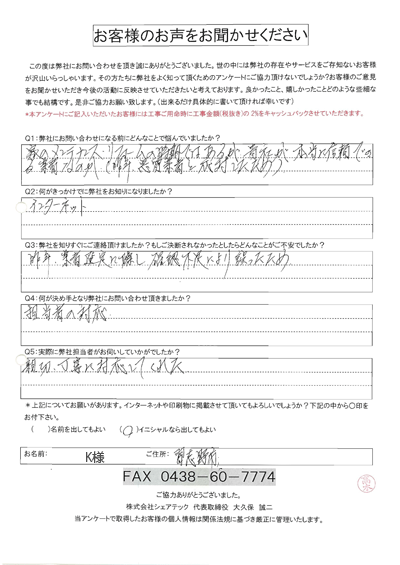 お客様のお声をお聞かせください
この度は弊社にお問い合わせを頂き誠にありがとうございました。世の中には弊社の存在やサービスをご存知ないお客様
が沢山いらっしゃいます。その方たちに弊社をよく知って頂くためのアンケートにご協力頂けないでしょうか？お客様のご意見
をお聞かせいただき今後の活動に反映させていただきたいと考えております。良かったこと、嬉しかったことどのような些細な
事でも結構です。是非ご協力お願い致します。(出来るだけ具体的に書いて頂ければ幸いです)
*本アンケートにご記入いただいたお客様には工事ご用命時に工事金額(税抜き)の2%をキャッシュバックさせていただきます。
Q1:弊社にお問い合わせになる前にどんなことで悩んでいましたか？
Q2:何がきっかけでに弊社をお知りになりましたか？
インターネット
Q3:弊社を知りすぐにご連絡頂けましたか？もしご決断されなかったとしたらどんなことがご不安でしたか？
Q4:何が決め手となり弊社にお問い合わせ頂きましたか？
担当者の対応
Q5:実際に弊社担当者がお伺いしていかがでしたか？
親切、丁寧に対応してくれた
*上記についてお願いがあります。インターネットや印刷物に掲載させて頂いてもよろしいでしょうか？下記の中から〇印を
お付下さい。
( )名前を出してもよい (〇)イニシャルなら出してもよい
お名前: K様 ご住所:
FAX 0438-60-7774
ご協力ありがとうございました。
株式会社シェアテック 代表取締役 大久保 誠二
当アンケートで取得したお客様の個人情報は関係法規に基づき厳正に管理いたします。